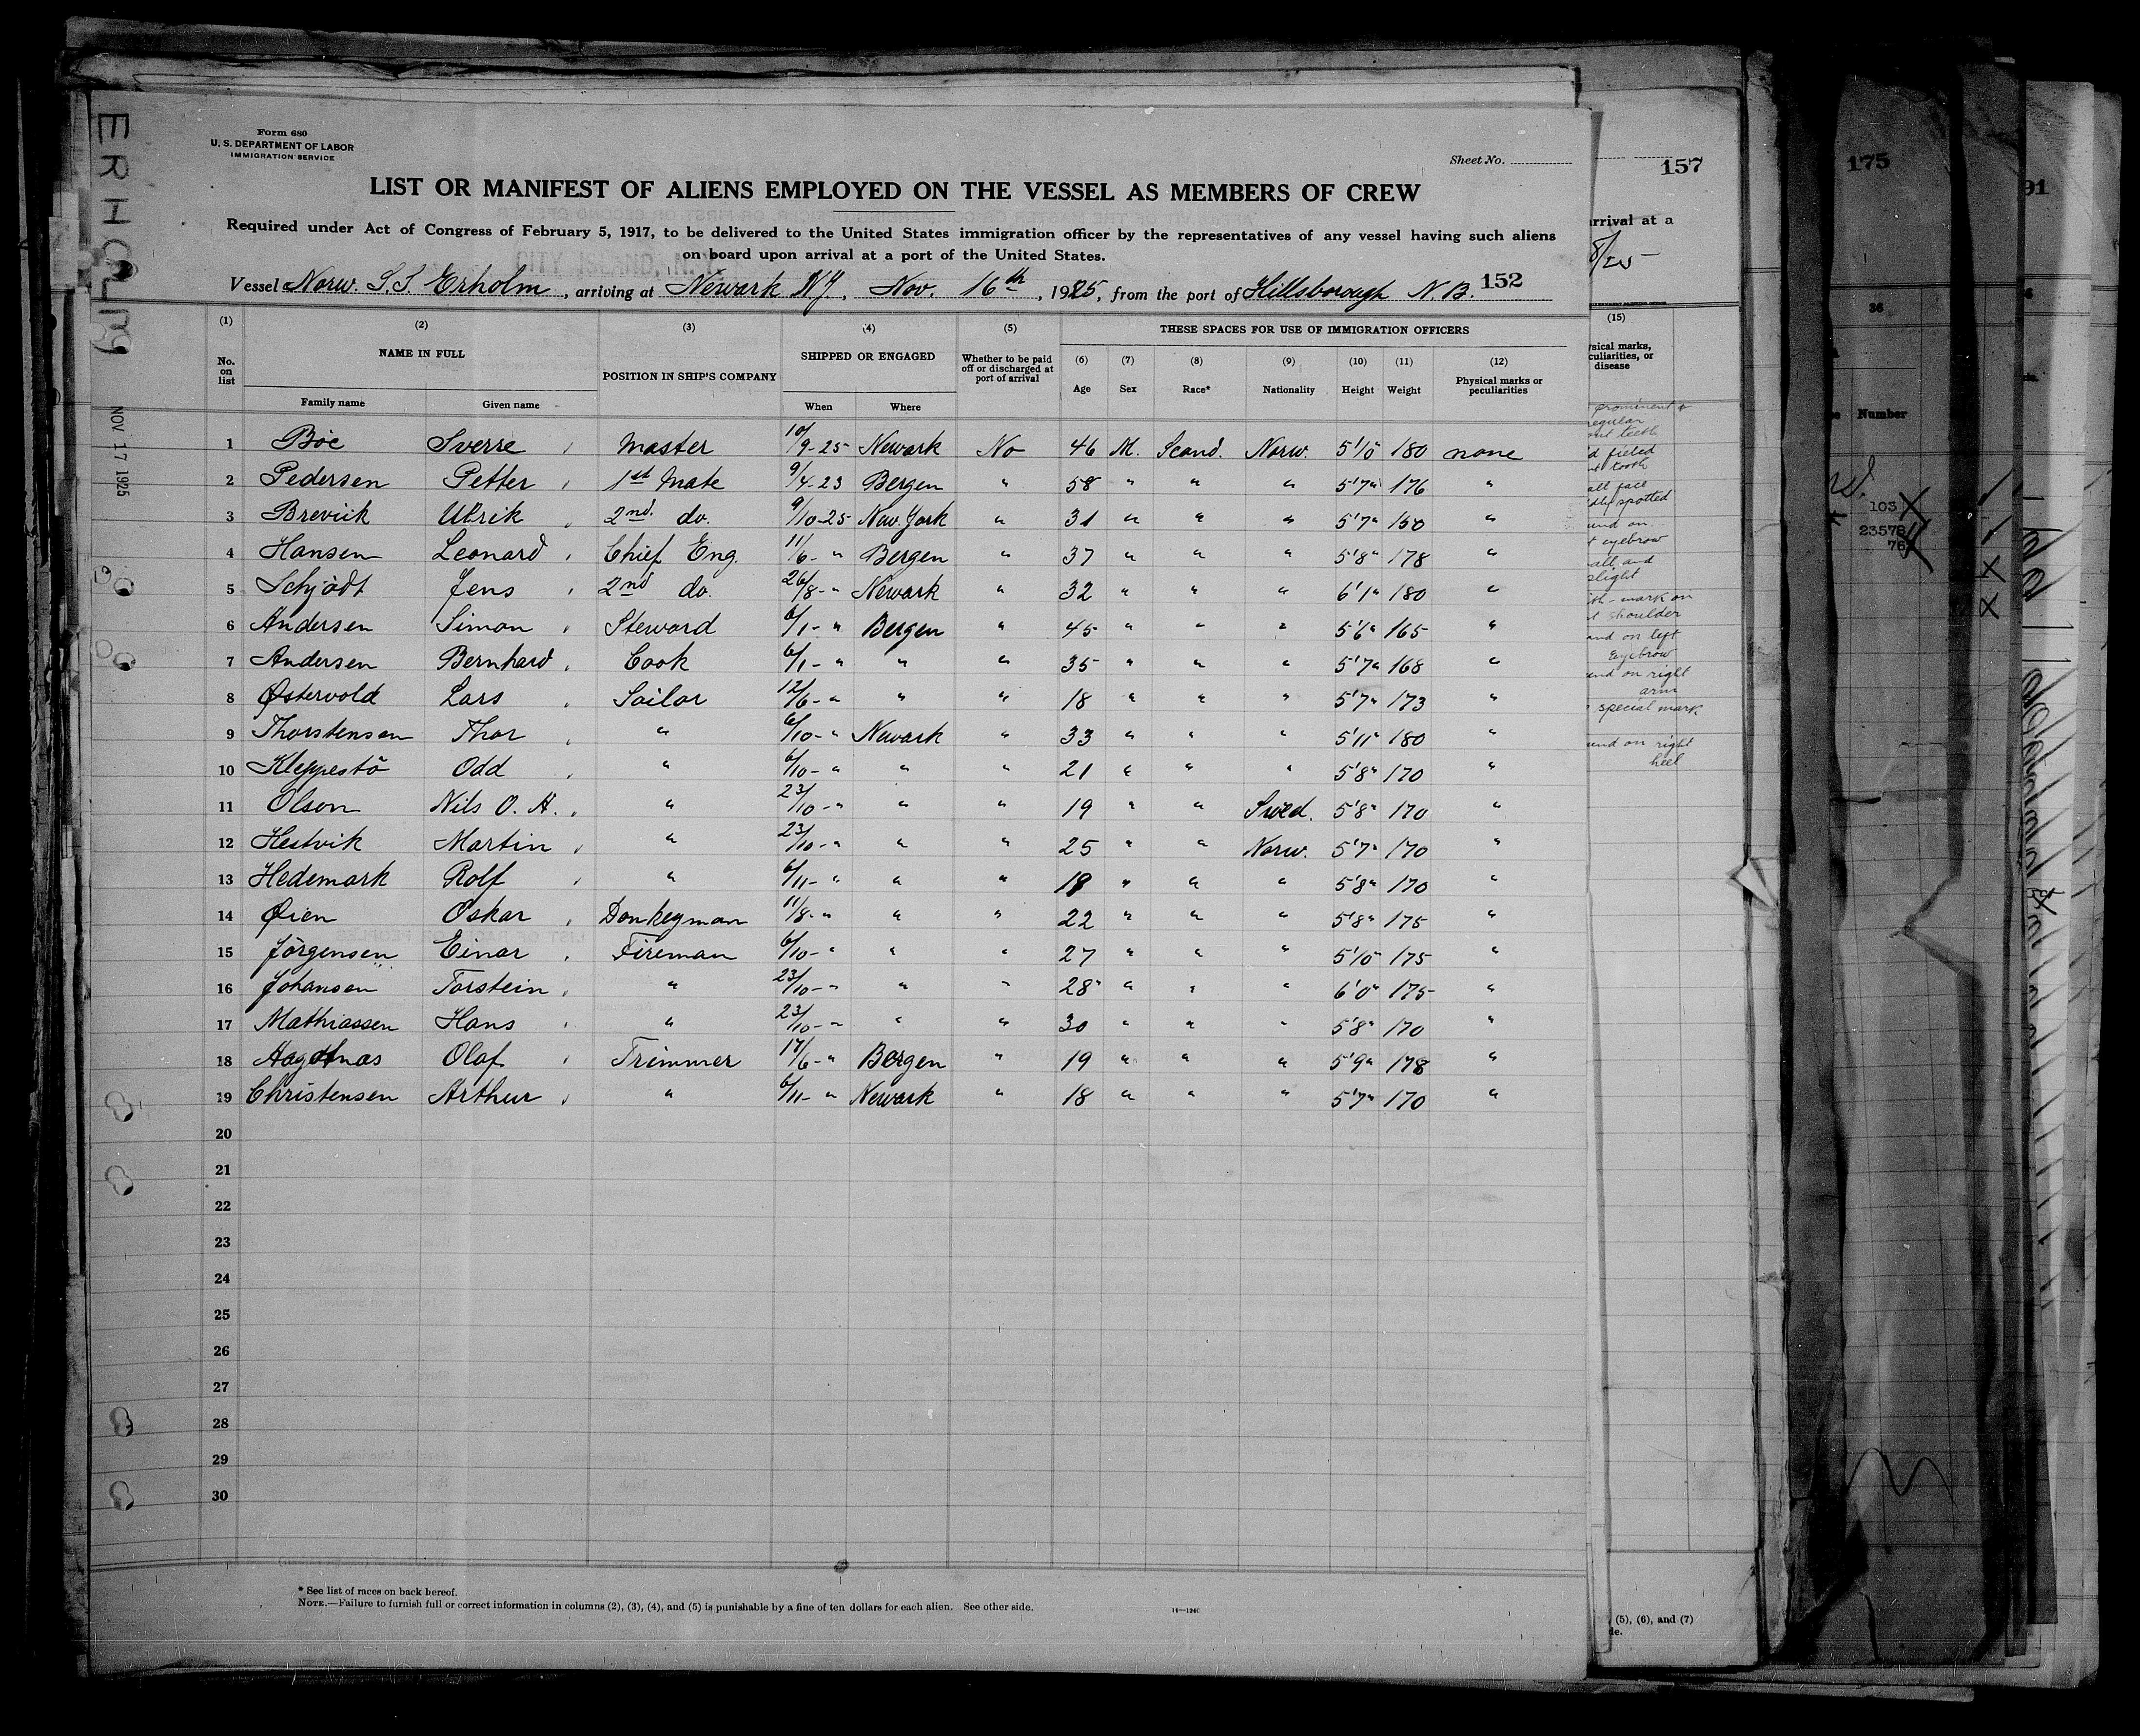 ERHOLM
NOV 17 1925
Form 680
U. S. DEPARTMENT OF LABOR
IMMIGRATION SERVICE
Sheet No.
LIST OR MANIFEST OF ALIENS EMPLOYED ON THE VESSEL AS MEMBERS OF CREW
Required under Act of Congress of February 5, 1917, to be delivered to the United States immigration officer by the representatives of any vessel having such aliens
on board upon arrival at a port of the United States.
Vessel Norw. S.S. Erholm, arriving at Newark NJ., Nov. 16th, 1925, from the port of Hillsborough N.B. 152
(1) (2) (3) (4) (5) THESE SPACES FOR USE OF IMMIGRATION OFFICERS
No. on list NAME IN FULL POSITION IN SHIP'S COMPANY SHIPPED OR ENGAGED Whether to be paid off or discharged at port of arrival (6) Age (7) Sex (8) Race* (9) Nationality (10) Height (11) Weight (12) Physical marks or peculiarities
Family name Given name When Where
1 Böe Sverre Master 10/9-25 Newark No 46 M. Scand. Norw. 5'10" 180 none
2 Pedersen Petter 1st Mate 9/4-23 Bergen " 58 " " " 5'7" 176 "
3 Breviik Ulrik 2nd. do. 9/10-25 New. York " 31 " " " 5'7" 150 "
4 Hansen Leonard Chief Eng. 11/6- " Bergen " 37 " " " 5'8" 178 "
5 Schjödt Jens 2nd do. 26/8- " Newark " 32 " " " 6'1" 180 "
6 Andersen Simon Steward 6/1- " Bergen " 45 " " " 5'6" 165 "
7 Andersen Bernhard Cook 6/1- " " " 35 " " " 5'7" 168 "
8 Østervold Lars Sailor 12/6- " " " 18 " " " 5'7" 173 "
9 Thorstensen Thor " 6/10- " Newark " 33 " " " 5'11" 180 "
10 Kleppestö Odd " 6/10- " " " 21 " " " 5'8" 170 "
11 Olson Nils O. H. " 23/10- " " " 19 " " Swed. 5'8" 170 "
12 Hestvik Martin " 23/10- " " " 25 " " Norw. 5'7" 170 "
13 Hedemark Rolf " 6/11- " " " 19 " " " 5'8" 170 "
14 Øien Oskar Donkeyman 11/8- " " " 22 " " " 5'8" 175 "
15 Jörgensen Einar Fireman 6/10- " " " 27 " " " 5'10" 175 "
16 Johansen Torstein " 23/10- " " " 28 " " " 6'0" 175 "
17 Mathiassen Hans " 23/10- " " " 30 " " " 5'8" 170 "
18 Olaf Trimmer 17/6- " Bergen " 19 " " " 5'9" 178 "
19 Christensen Arthur " 6/11- " Newark " 18 " " " 5'7" 170 "
20
21
22
23
24
25
26
27
28
29
30
* See list of races on back hereof.
NOTE.—Failure to furnish full or correct information in columns (2), (3), (4), and (5) is punishable by a fine of ten dollars for each alien. See other side.
14—1240
157
arrival at a
(15)
disease
prominent
regular
tooth
spotted
eyebrow
slight
mark on
shoulder
and on left
Eyebrow
on right
arm
special mark
on right
heel
(5), (6), and (7)
175
36
Number
103
23578
76
91